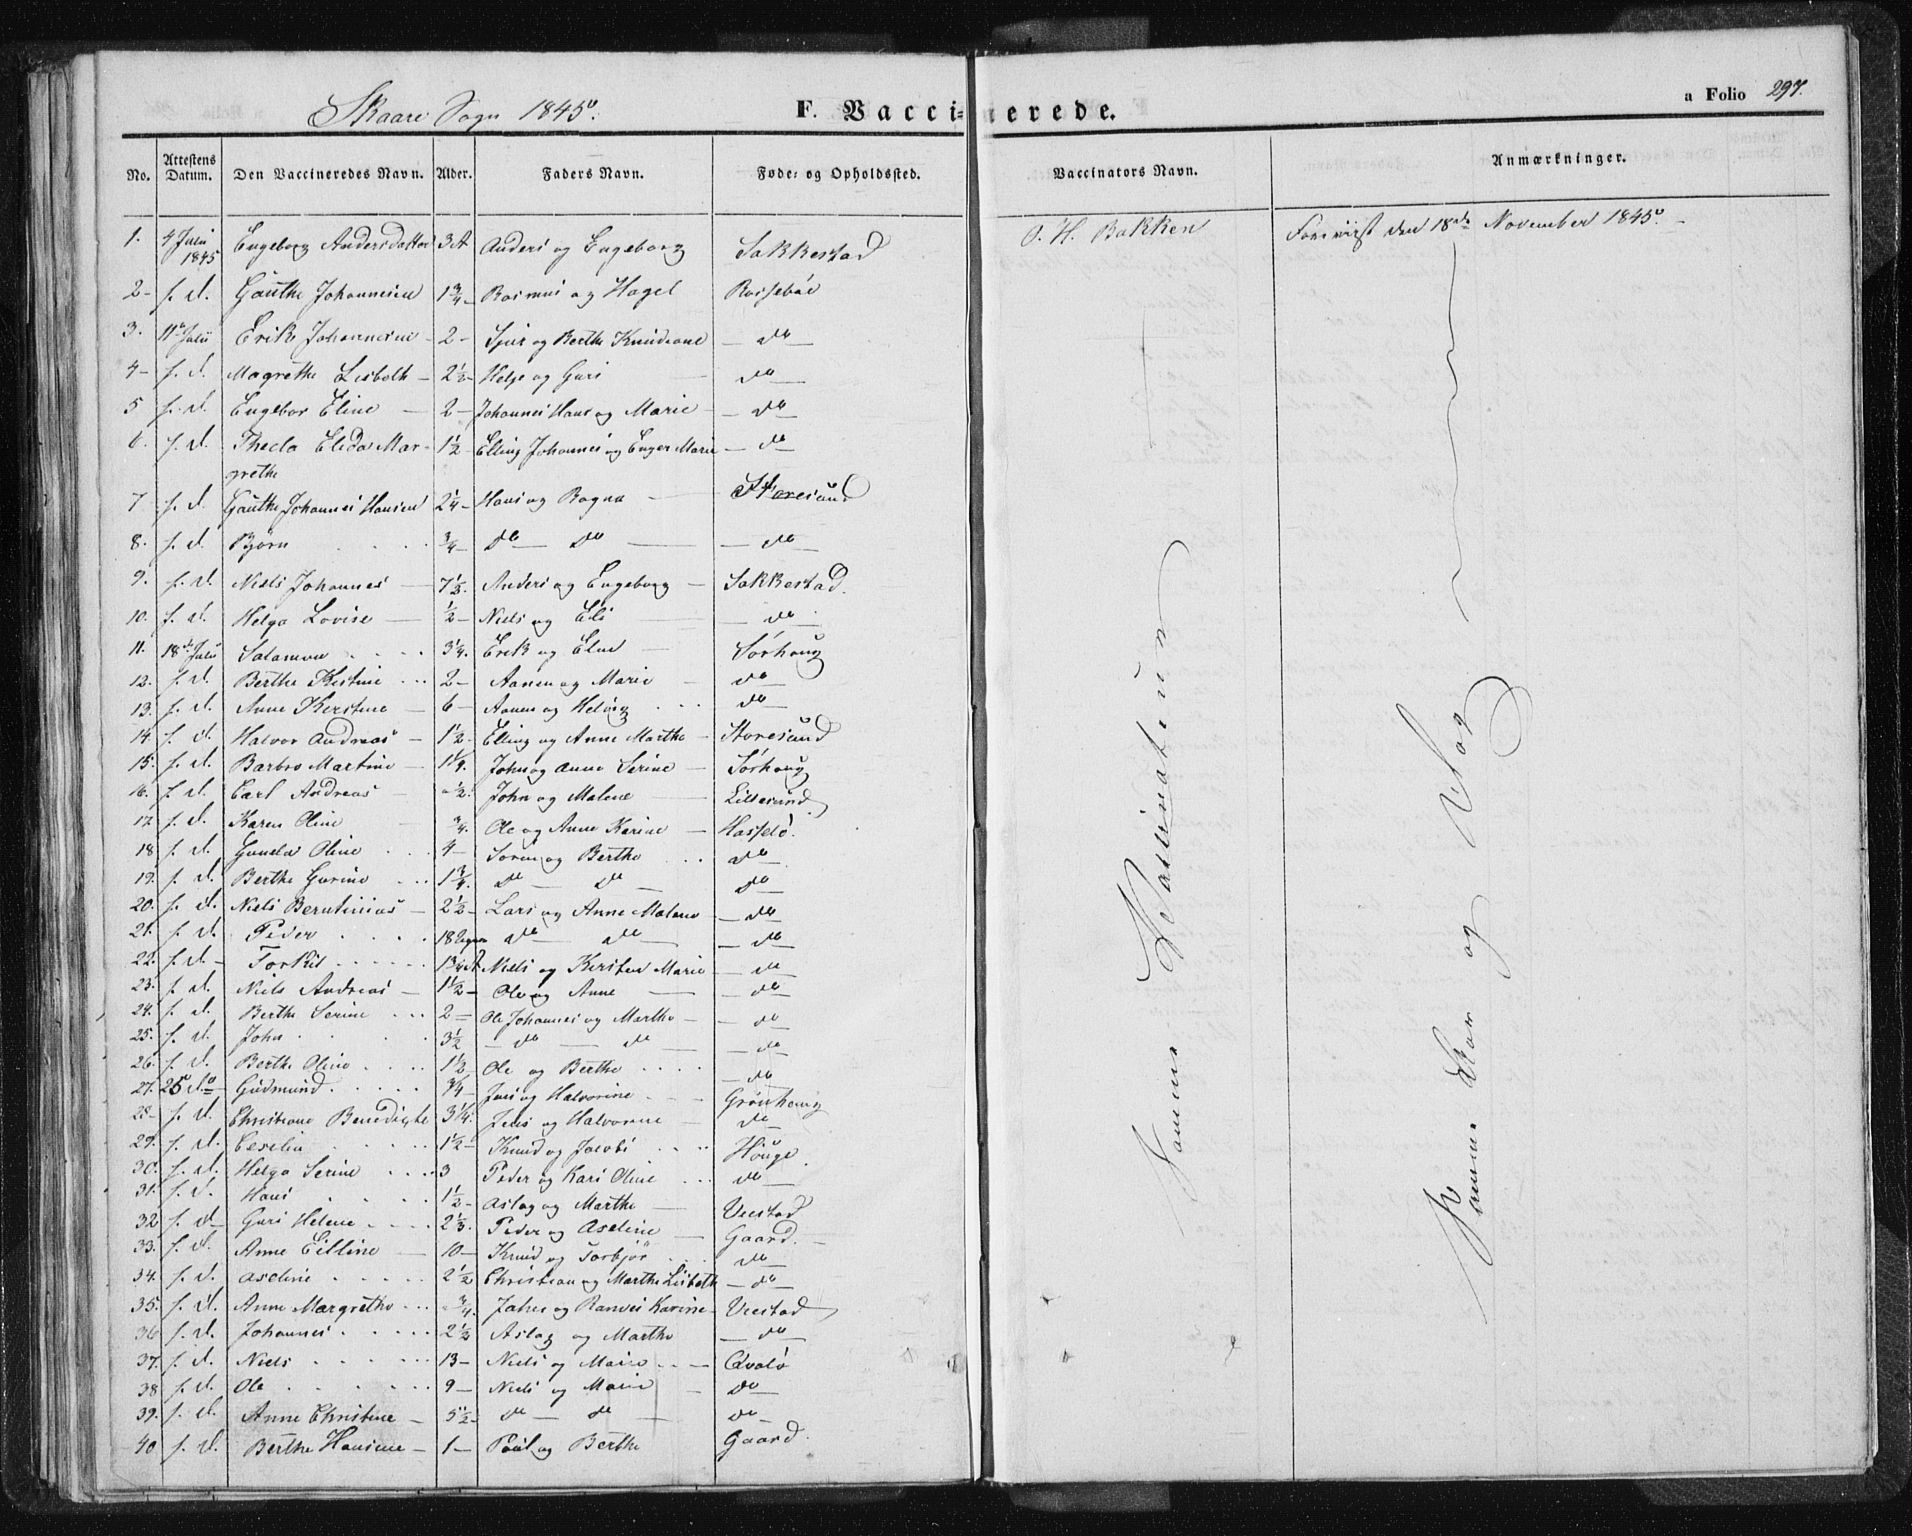 Skaare Sogn 1845. F. Vaccinerede. a Folio 297.
No. Attestens Datum. Den Vaccineredes Navn. Alder. Faders Navn. Føde- og Opholdssted. Vaccinators Navn. Anmærkninger.
1. 4 Juli 1845 Engeborg Andersdatter 3 A Anders og Engeborg Sakkestad O. H. Bakken Foreviist den 18de November 1845.
2- s. d. Gauthe Johannesen 1 3/4 - Rasmus og Hagel Rossebøe
3. 11 Juli Erik Johannesen - 2 - Sjur og Berthe Knudsdne - do -
4- s. d. Magrethe Lisbeth - 2 1/2 - Helje og Guri - do -
5 s. d. Engebor Eline - 2 - Johannes Hans og Marie - do -
6. s. d. Thecla Elida Mar- 1 1/2 - Elling Johannes og Enger Marie - do -
grethe
7 s. d. Gauthe Johannes Hansen 2 1/4 - Hans og Ragna - Storesund
8. s. d. Bjørn 3/4 - do - do - - do -
9. s. d. Niels Johannes - 7 1/2. Anders og Engeborg - Sakkestad.
10. s. d. Helga Lovise - 1/2 - Niels og Eli - do -
11. 18 Juli Salamon 3 1/4. Erik og Elne - Sørhoug
12. s. d. Berthe Kistine 2 - Aanen og Marie - do -
13. s. d. Anne Kirstine - 6 - Aanen og Helvig do -
14. s. d. Halvor Andreas - 1 1/2 - Elling og Anne Marthe - Storesund
15. s. d. Barbro Martine - 1 1/4. John og Anne Serine - Sørhoug
16. s. d. Carl Andreas - 1/2. John og Malene - Lillesund
17. s. d. Karen Oline 3/4. Ole og Anne Karine - Hasselø.
18 s. d. Gunela Oline 4 - Soren og Berthe do
19. s. d. Berthe Gurine 1 3/4. do - do - do
20. s. d. Niels Berntinius - 2 1/2 - Lars og Anne Malene - do -
21. s. d. Peder 18 Uger do - do - - do -
22. s. d - Torkel 1 3/4 A Niels og Kirsten Marie - do
23. s. d. Niels Andreas - 1 1/2 - Ole og Anne - - do -
24. s. d. Berthe Serine 2 - Ole Johannes og Marthe - - do
25. s. d. John 3 1/2 - do - do - - do
26. s. d. Berthe Oline 1 1/2 Ole og Berthe - do
27. 25 do Gudmund 3/4 Jens og Halvorine Grønhoug
28- s. d. Christiane Benedigte 3 1/4. Jens og Halvorine - do -
29. s. d. Ceselia 1 1/2 - Knud og Jacobi Houge
30. s. d. Helga Serine 3 Peder og Kari Oline do -
31. s. d. Hans 1 1/2 - Aslag og Marthe - Veestad
32 s. d- Guri Helene 2 1/3. Peder og Aseline Gaard. -
33. s. d. Anne Elline - 10 - Knud og Torbjør do -
34. s. d. Aseline 2 1/2 Christian og Marthe Lisbeth - do -
35. s. d. Anne Margrethe 3/4. Jahn og Ranvei Karine - Veestad
36 s. d. Johannes 2 1/2 Aslag og Marthe - do -
37. s. d. Niels 13 - Niels og Marie - Qvalø
38 s. d. Ole 9 - Niels og Marie - do -
39. s. d. Anne Christine - 5 1/2 - do - do - do -
40 s. d. Berthe Hansine - 1 - Poul og Berthe Gaard.
Samme Vaccinateur
Samme Dag og